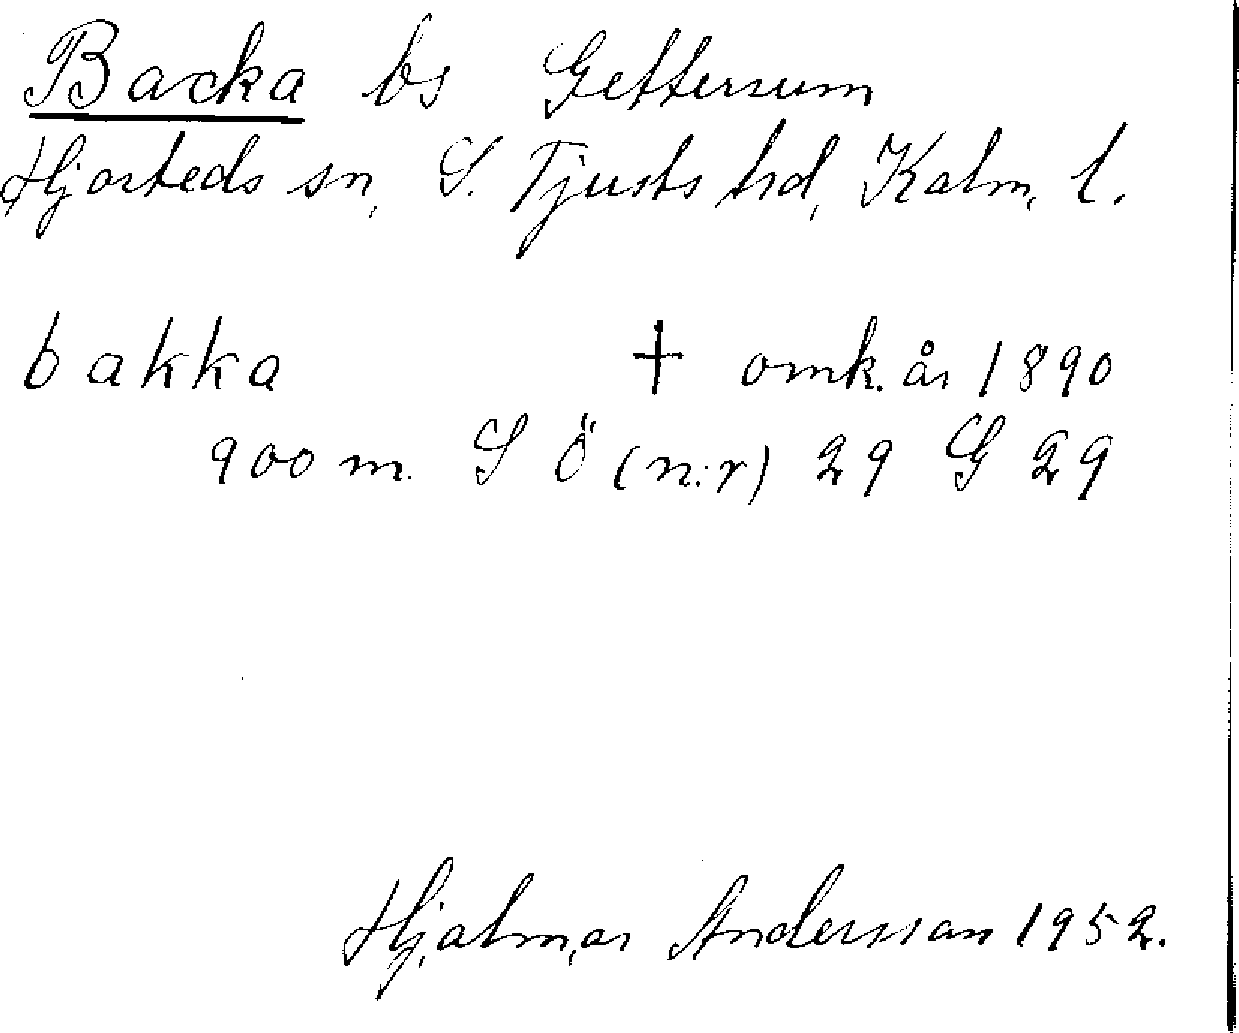 Backa bs Gettersum
Hjorteds sn, S. Tjusts hd, Kalm. l.
bakka † omk. år 1890
900 m. S Ö (n:r) 29 G 29
Hjalmar Andersson 1952.